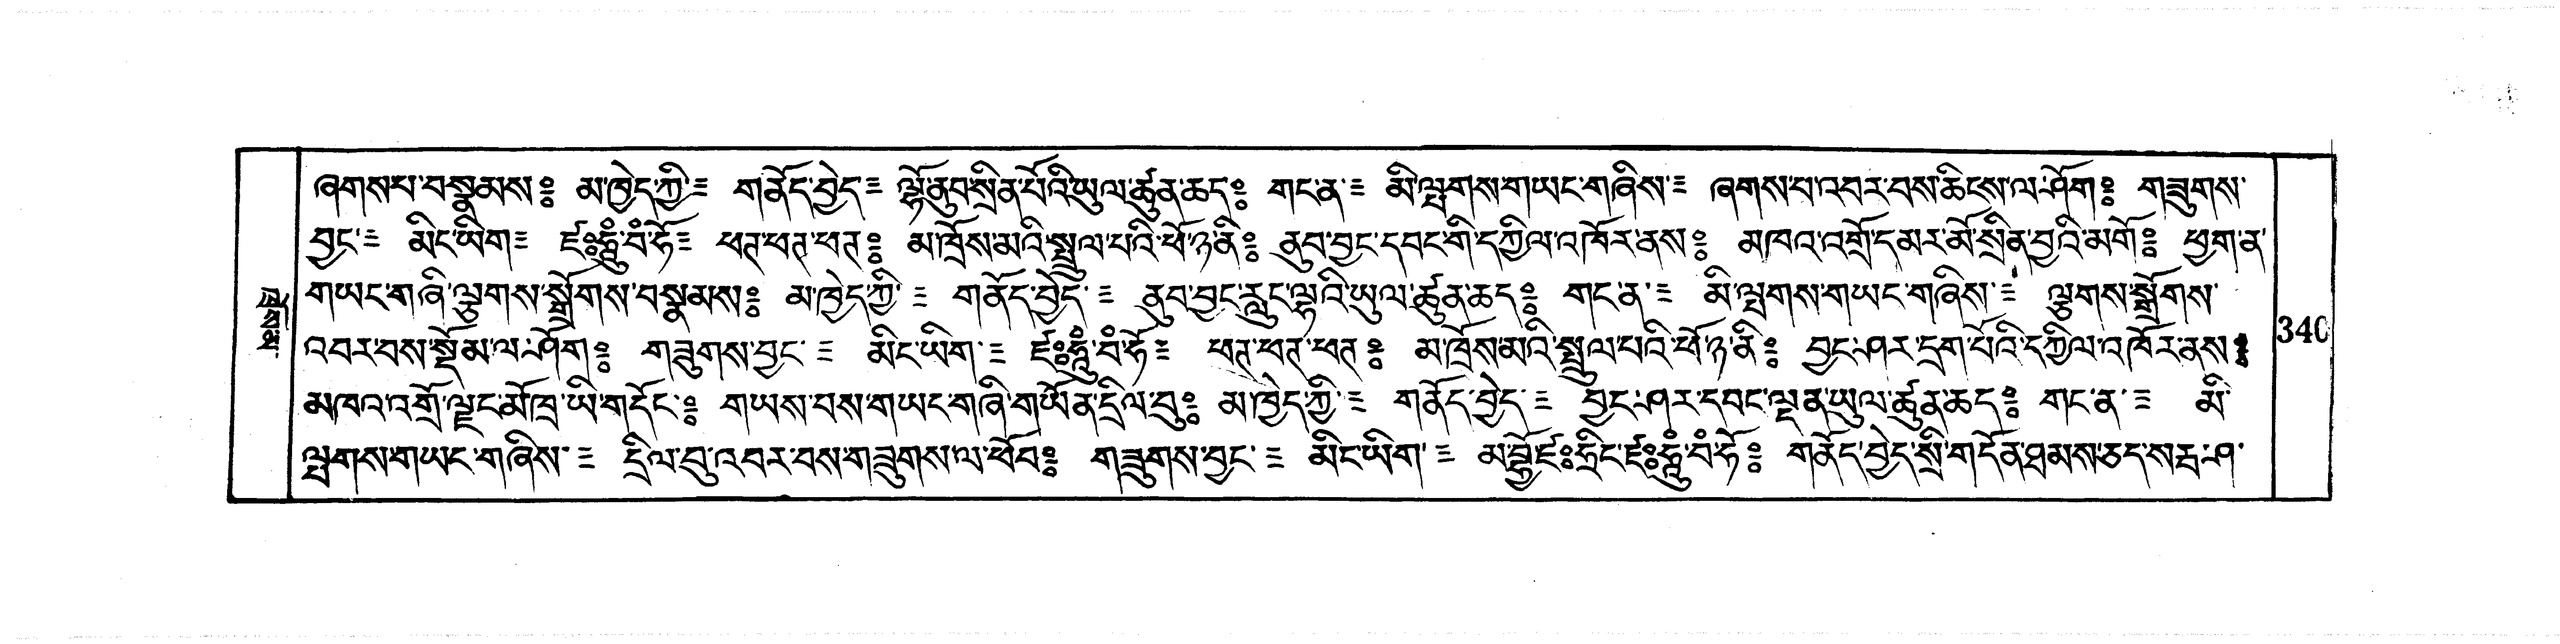 ཞགས་པ་བསྣམས༔ མ་ཁྱེད་ཀྱི༴ གནོད་བྱེད༴ ལྷོ་ནུབ་སྲིན་པོའི་ཡུལ་ཚུན་ཆད༔ གང་ན་༴ མི་ལྤགས་གཡང་གཞིས་༴ ཞགས་པ་འབར་བས་ཆིངས་ལ་ཤོག༔ གཟུགས་
བྱང་༴ མིང་ཡིག༴ ཛཿཧཱུྃ་བཾ་ཧོ༴ ཕཊ་ཕཊ་ཕཊ༔ མ་ཁྲོས་མའི་སྤྲུལ་པའི་ཕོ་ཉ་ནི༔ ནུབ་བྱང་དབང་གི་དཀྱིལ་འཁོར་ནས༔ མཁའ་འགྲོ་དམར་མོ་སྲིན་བྱའི་མགོ༔ ཕྱག་ན་
གཡང་གཞི་ལྕགས་སྒྲོགས་བསྣམས༔ མ་ཁྱེད་ཀྱི་༴ གནོད་བྱེད་༴ ནུབ་བྱང་རླུང་ལྷའི་ཡུལ་ཚུན་ཆད༔ གང་ན་༴ མི་ལྤགས་གཡང་གཞིས་༴ ལྕགས་སྒྲོགས་
འབར་བས་སྡོམ་ལ་ཤོག༔ གཟུགས་བྱང་༴ མིང་ཡིག་༴ ཛཿཧཱུྃ་བཾ་ཧོ༴ ཕཊ་ཕཊ་ཕཊ༔ མ་ཁྲོས་མའི་སྤྲུལ་པའི་ཕོ་ཉ་ནི༔ བྱང་ཤར་དྲག་པོའི་དཀྱིལ་འཁོར་ནས༔
མཁའ་འགྲོ་ལྗང་མོ་ཁྲ་ཡི་གདོང་༔ གཡས་པས་གཡང་གཞི་གཡོན་དྲིལ་བུ༔ མ་ཁྱེད་ཀྱི་༴ གནོད་བྱེད་༴ བྱང་ཤར་དབང་ལྡན་ཡུལ་ཚུན་ཆད༔ གང་ན་༴ མི་
ལྤགས་གཡང་གཞིས་༴ དྲིལ་བུ་འབར་བས་གཟུགས་ལ་ཕོབ༔ གཟུགས་བྱང་༴ མིང་ཡིག་༴ མ་ཧྲིང་ཛཿཧཱུྃ་བཾ་ཧོ༔ གནོད་བྱེད་སྲི་གདོན་ཐམས་ཅད་ས་རྦ་ཤ་
340